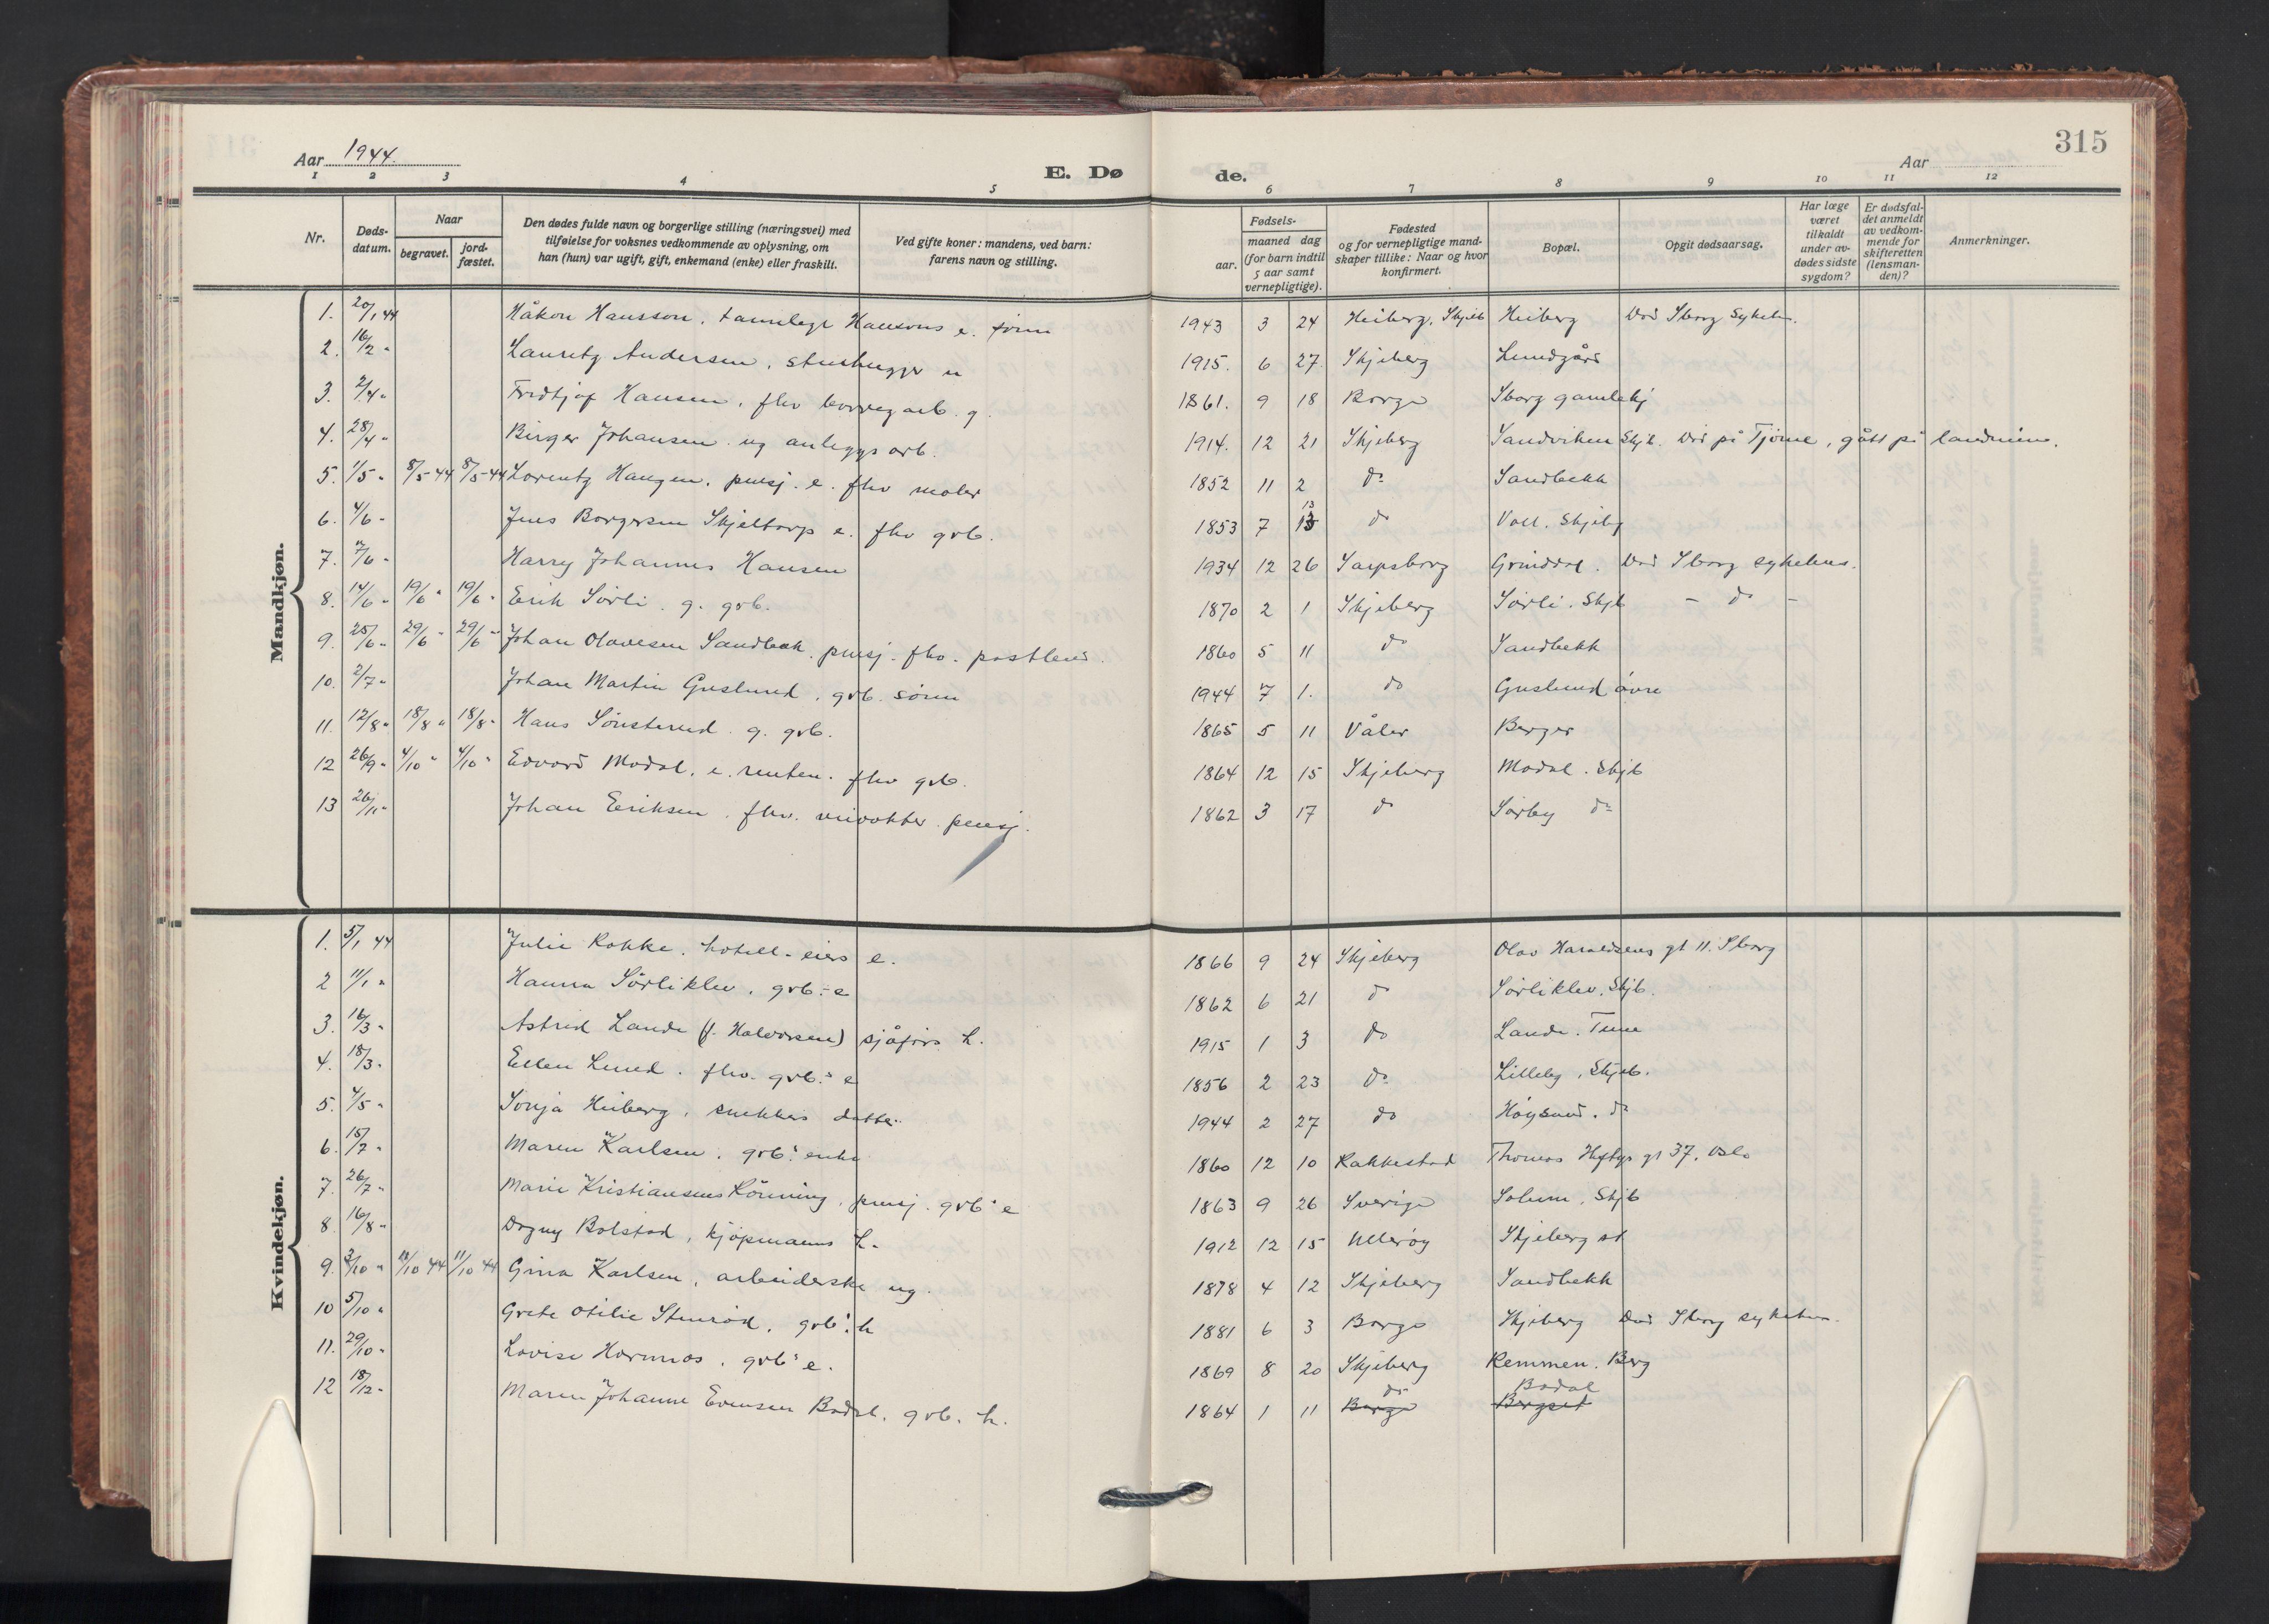 Aar 1944.
E. Døde.
Aar
315
1 2 3 4 5 6 7 8 9 10 11 12
Nr.
Dødsdatum.
Naar
begravet.
jordfæstet.
Den dødes fulde navn og borgerlige stilling (næringsvei) med
tilføielse for voksnes vedkommende av oplysning, om
han (hun) var ugift, gift, enkemand (enke) eller fraskilt.
Ved gifte koner: mandens, ved barn:
farens navn og stilling.
Fødsels-
aar.
maaned dag
(for barn indtil
5 aar samt
vernepligtige).
Fødested
og for vernepligtige mand-
skaper tillike: Naar og hvor
konfirmert.
Bopæl.
Opgit dødsaarsag.
Har læge
været
tilkaldt
under av-
dødes sidste
sygdom?
Er dødsfal-
det anmeldt
av vedkom-
mende for
skifteretten
(lensman-
den)?
Anmerkninger.
Mandkjøn.
1. 20/1 44 Håkon Hansson, tannlege Hansons e. sønn 1943 3 24 Heiberg, Skjeb Heiberg Död Sborg Sykehus.
2. 16/2 " Lauritz Andersen, stenhugger u 1915. 6 27. Skjeberg Lundgård
3. 2/4 " Fredtjof Hansen, fhv borregarb. g. 1861. 9 18 Borge Sborg gamlehj
4. 28/4 " Birger Johansen ug anleggsarb. 1914. 12 21 Skjeberg Sandviken Skjb. Död på Tjöme, gått på landmine.
5. 1/5 " 8/5-44 8/5-44 Lorentz Haugen. pensj. e. fhv maler 1852 11 2 do Sandbekk
6. 4/6 - Jens Borgersen Skjeltorp e. fhv gvb. 1853 7 13 13 do Voll. Skjebg
7. 7/6 - Harry Johannes Hansen 1934 12 26 Sarpsborg Grinddal. Död Sborg sykehus.
8. 14/6 - 19/6 " 19/6 " Erik Sörli. g. gvb. 1870 2 1 Skjeberg Sörli. Skjb - do -
9. 25/6 - 29/6 " 29/6 " Johan Olavesen Sandbæk, pensj. fhv. postbud. 1860 5 11 do Sandbekk
10. 2/7 " Johan Martin Guslund, gvb. sönn 1944 7 1. do Guslund övre
11. 12/8 " 18/8 " 18/8 " Hans Sönsterud. g. gvb. 1865 5 11 Våler Berger
12 26/9 " 4/10 " 4/10 " Edvard Modal, e. renten. fhv gvb. 1864 12 15 Skjeberg Modal. Skjb
13 26/11 - Johan Eriksen. fhv. veivokter pensj. 1862 3 17 do Sörby do
Kvindekjøn.
1. 5/1 44 Julie Rokke. hotell-eiers e. 1866 9 24 Skjeberg Olav Haraldsens gt 11. Sborg
2 11/1 " Hanna Sörliklev, gvb:-e 1862 6 21 do Sörliklev. Skjb.
3. 16/3 - Astrid Lande (f. Halvorsen) sjåførs h. 1915 1 3 do Lande. Tune
4. 18/3 - Ellen Lund. fhv. gvb:s e 1856 2 23 do Lilleby, Skjeb.
5. 4/5 - Sonja Heiberg, snekkers datter 1944 2 27 do Höysand. do
6. 15/7 - Maren Karlsen, gvb: enke 1860 12 10 Rakkestad Thomas Heftys gt 37. Oslo
7. 26/7 - Marie Kristiansens Rönning, pensj. gvb: e 1863 9 26 Sverige Solum, Skjb
8 16/8 - Dagny Bolstad, kjöpmanns h. 1912 12 15 Ulleröy Skjeberg st
9. 3/10 " 11/10 44 11/10 44 Gina Karlsen, arbeiderske ug. 1878 4 12 Skjeberg Sandbekk
10 5/10 " Grete Otilie Stenröd, gvb: h 1881 6 3 Borge Skjeberg Död Sborg sykehus.
11. 29/10 - Lovise Hornnes. gvb:s e. 1869 8 20 Skjeberg Remmen. Berg
12 18/12 - Maren Johanne Evensen Bodal. gvb. h. 1864 1 11 do Borge Bodal Bergset